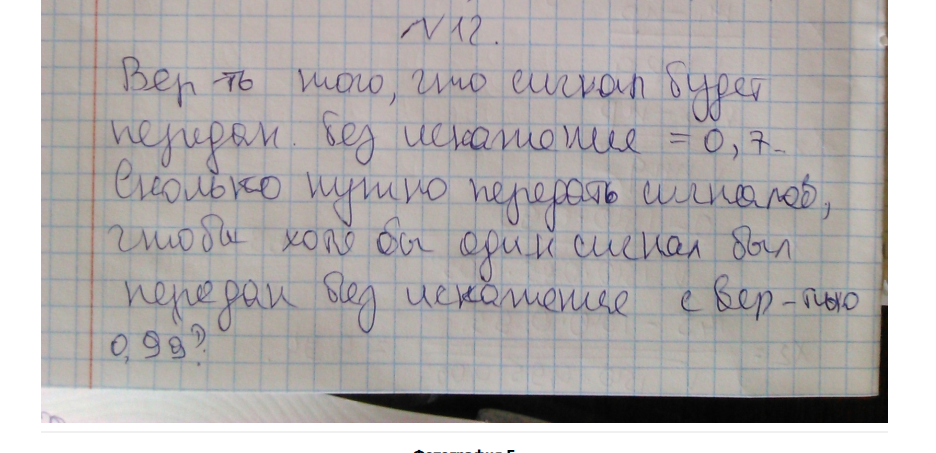 N 12.
Вер-ть того, что сигнал будет
передан без искажения = 0,7.
Сколько нужно передать сигналов,
чтобы хотя бы один сигнал был
передан без искажение с вер-тью
0,99?